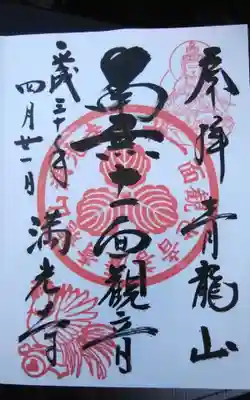 奉拝 青龍山
南無十一面観音
満光寺
平成三十年
四月廿一日